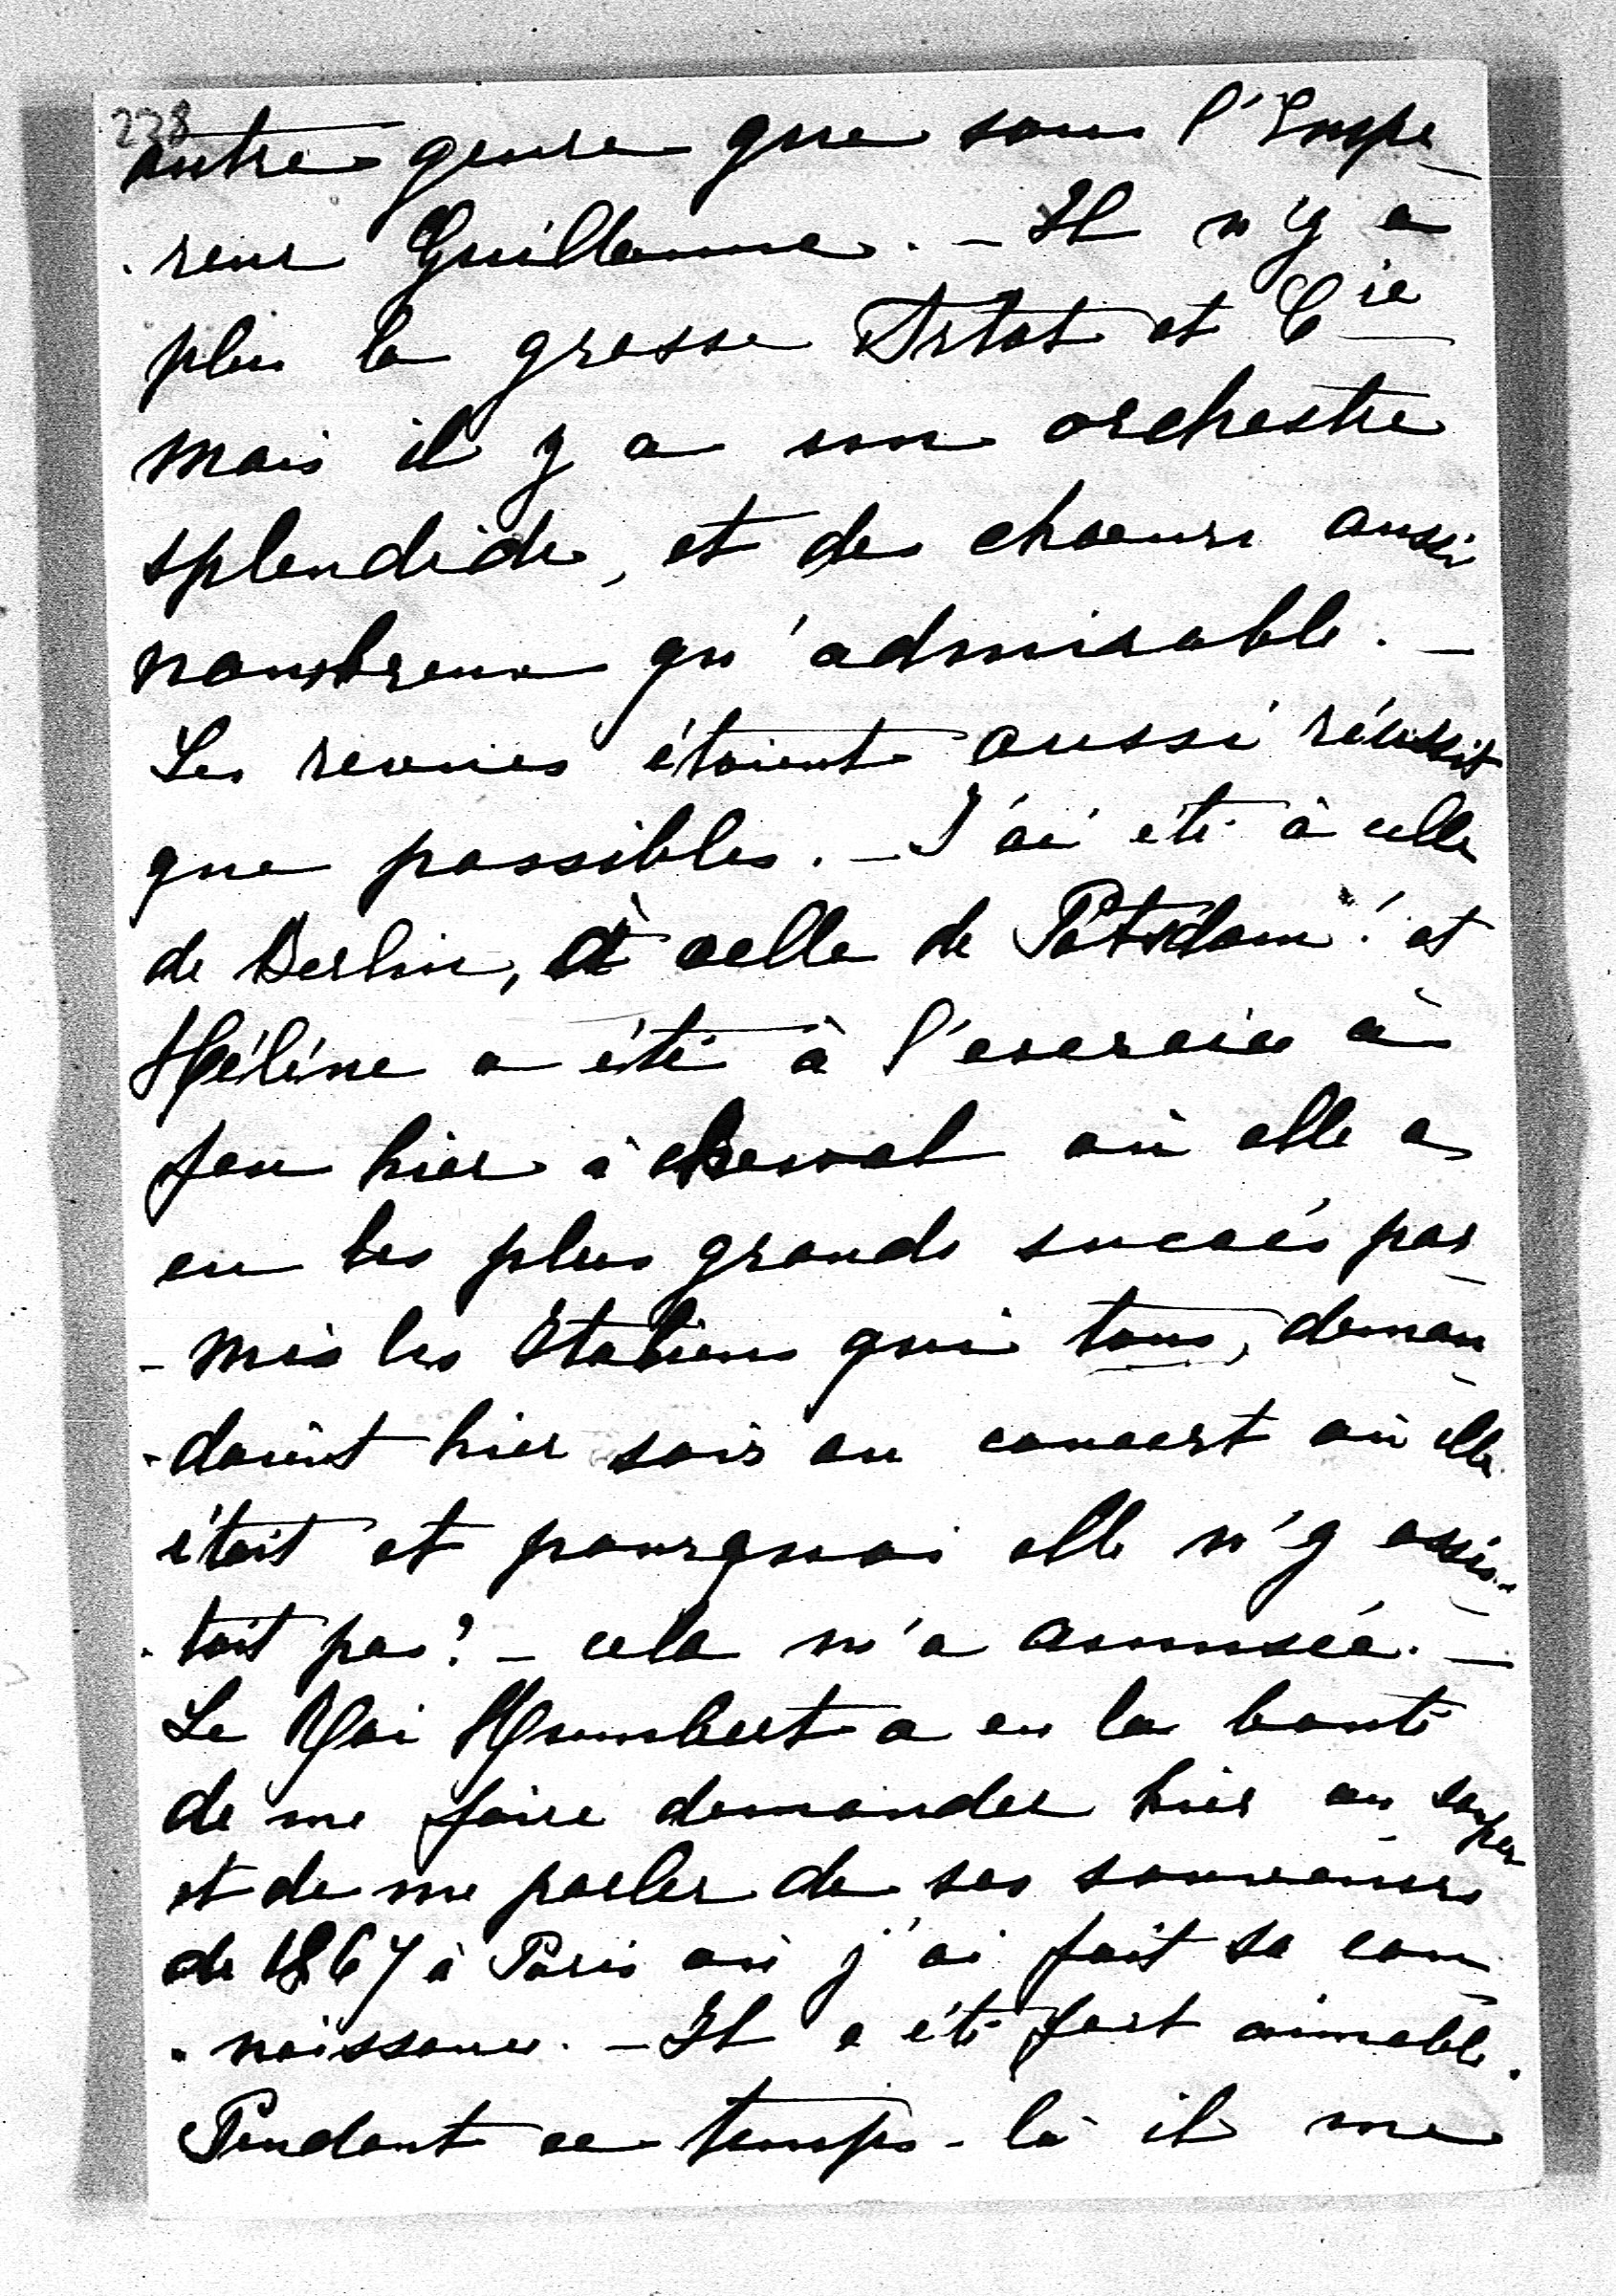 238
autre genre que sous l'Empe-
-reur Guillaume. - Il n'y a
plus la grosse Artot et Cie
mais il y a son orchestre
splendide, et des choeurs aussi
nombreux qu'admirable. -
Les revues étaient aussi réussit
que possibles. - J'ai été à celle
de Berlin, à celle de Potsdam! et
Hélène a été à l'exercice à
feu hier à cheval où elle a
eu les plus grands succès par-
-mis les Italiens qui tous, deman-
-daient hier soir au concert où elle
était et pourquoi elle n'y assis-
-tait pas? - cela m'a amusée. -
Le Roi Humbert a eu la bonté
de me faire demander hier au souper
et de me parler de ses souvenirs
de 1867 à Paris où j'ai fait sa con-
-naissance. - Il a été fort aimable.
Pendant ce temps-là il me